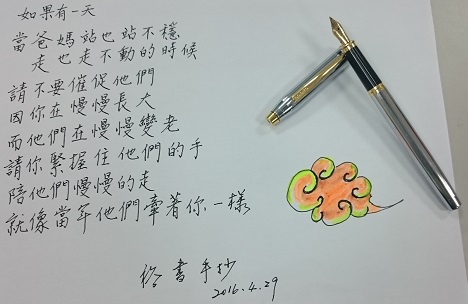 如果有一天
當爸媽站也站不穩
走也走不動的時候
請不要催促他們
因你在慢慢長大
而他們在慢慢變老
請你緊握住他們的手
陪他們慢慢的走
就像當年他們牽著你一樣
書手抄
2016.4.29